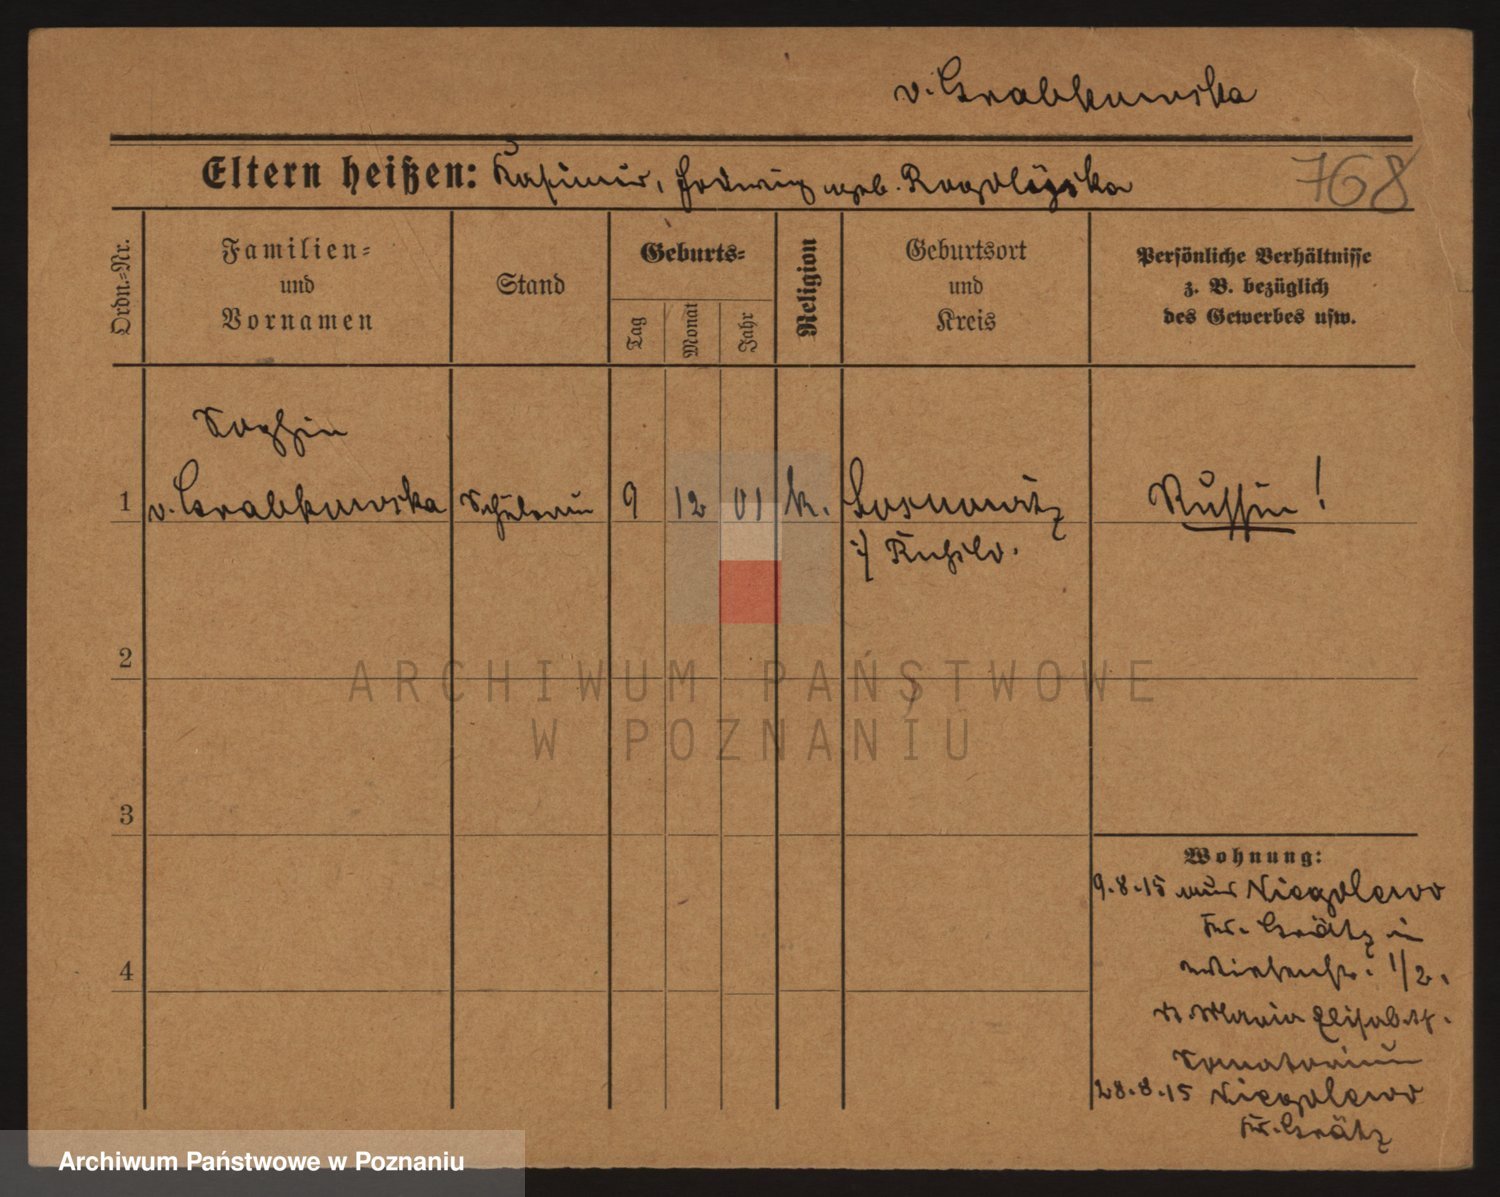 v. Grabkowska
Eltern heißen: Kasimir, Hedwig geb. Rogolińska
768
Ordn.-Nr.
Familien-
und
Vornamen
Stand
Geburts-
Tag
Monat
Jahr
Religion
Geburtsort
und
Kreis
Persönliche Verhältnisse
z. B. bezüglich
des Gewerbes usw.
Sophie
1 v. Grabkowska Schülerin 9 12 01 k. Sosnowitz Russin!
i/ Rußld.
2
ARCHIWUM PAŃSTWOWE
W POZNANIU
3
Wohnung:
9.8.15 aus Niegolewo
Kr. Grätz in
1/2.
Maria Elisabeth.
Sanatorium
28.8.15 Niegolewo
Kr. Grätz
4
Archiwum Państwowe w Poznaniu